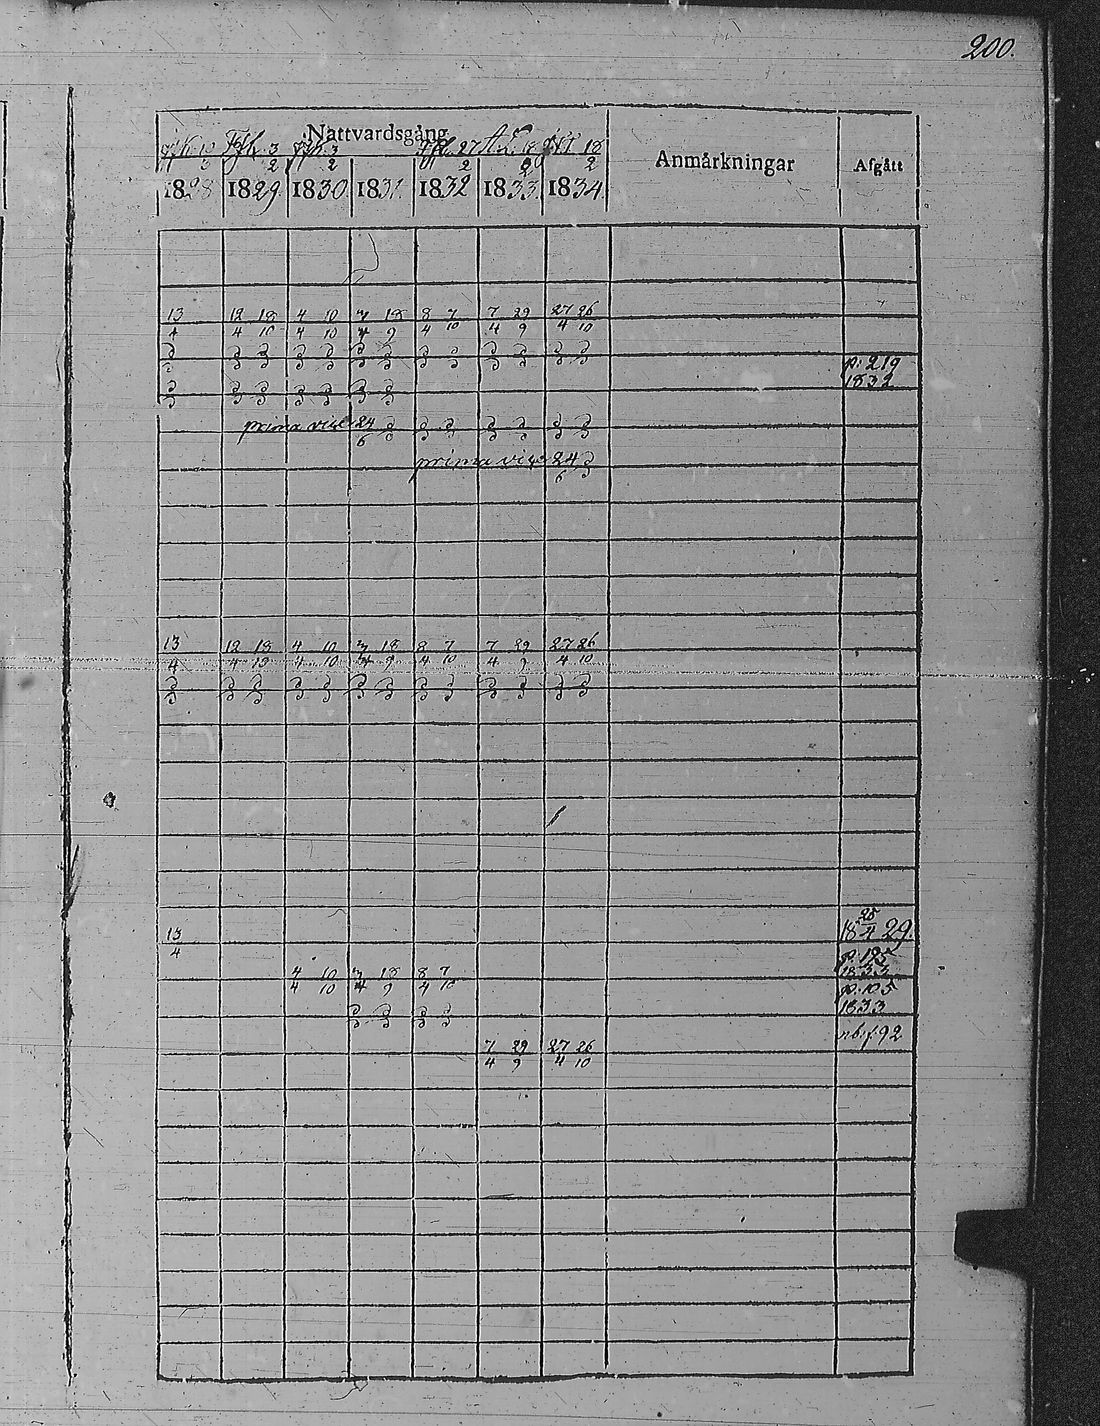 200.
Nattvardsgång
Anmärkningar
Afgått
3 3 27 18
2 2 2 2
1828 1829 1830 1831. 1832 1833. 1834.
13 12 18 4 10 3 18 8 7 7 29 27 26
4 4 10 4 10 4 9 4 10 4 9 4 10
p. 219
1832
prima vice 24
6
prima vice 24
6
13 12 18 4 10 3 18 8 7 7 29 27 26
4 4 10 4 10 4 9 4 10 4 9 4 10
25
13 18 4 29.
4
p. 195
1833
4 10 3 18 8 7
4 10 4 9 4 10
p. 105
1833
7 29 27 26
4 9 4 10